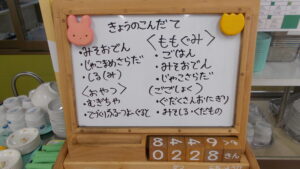 きょうのこんだて
みそおでん
・じゃこまめさらだ
・しる(み)
〈おやつ〉
・むぎちゃ
・てづくりふるーつよーぐると
〈ももぐみ〉
・ごはん
・みそおでん
・じゃこさらだ
(ごごしょく)
・ぐだくさんおにぎり
・みそしる・くだもの
8449
0228 さん